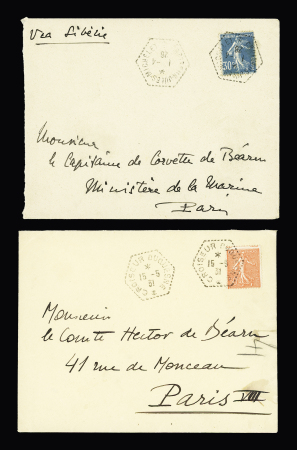 Via Sibérie
1-4
26
30c
Monsieur
le Capitaine de Corvette de Béarn
Ministère de la Marine
Paris
CROISEUR
15-5
31
CROISEUR
15-5
31
Monsieur
le Comte Hector de Béarn
41 rue de Monceau
Paris VIII